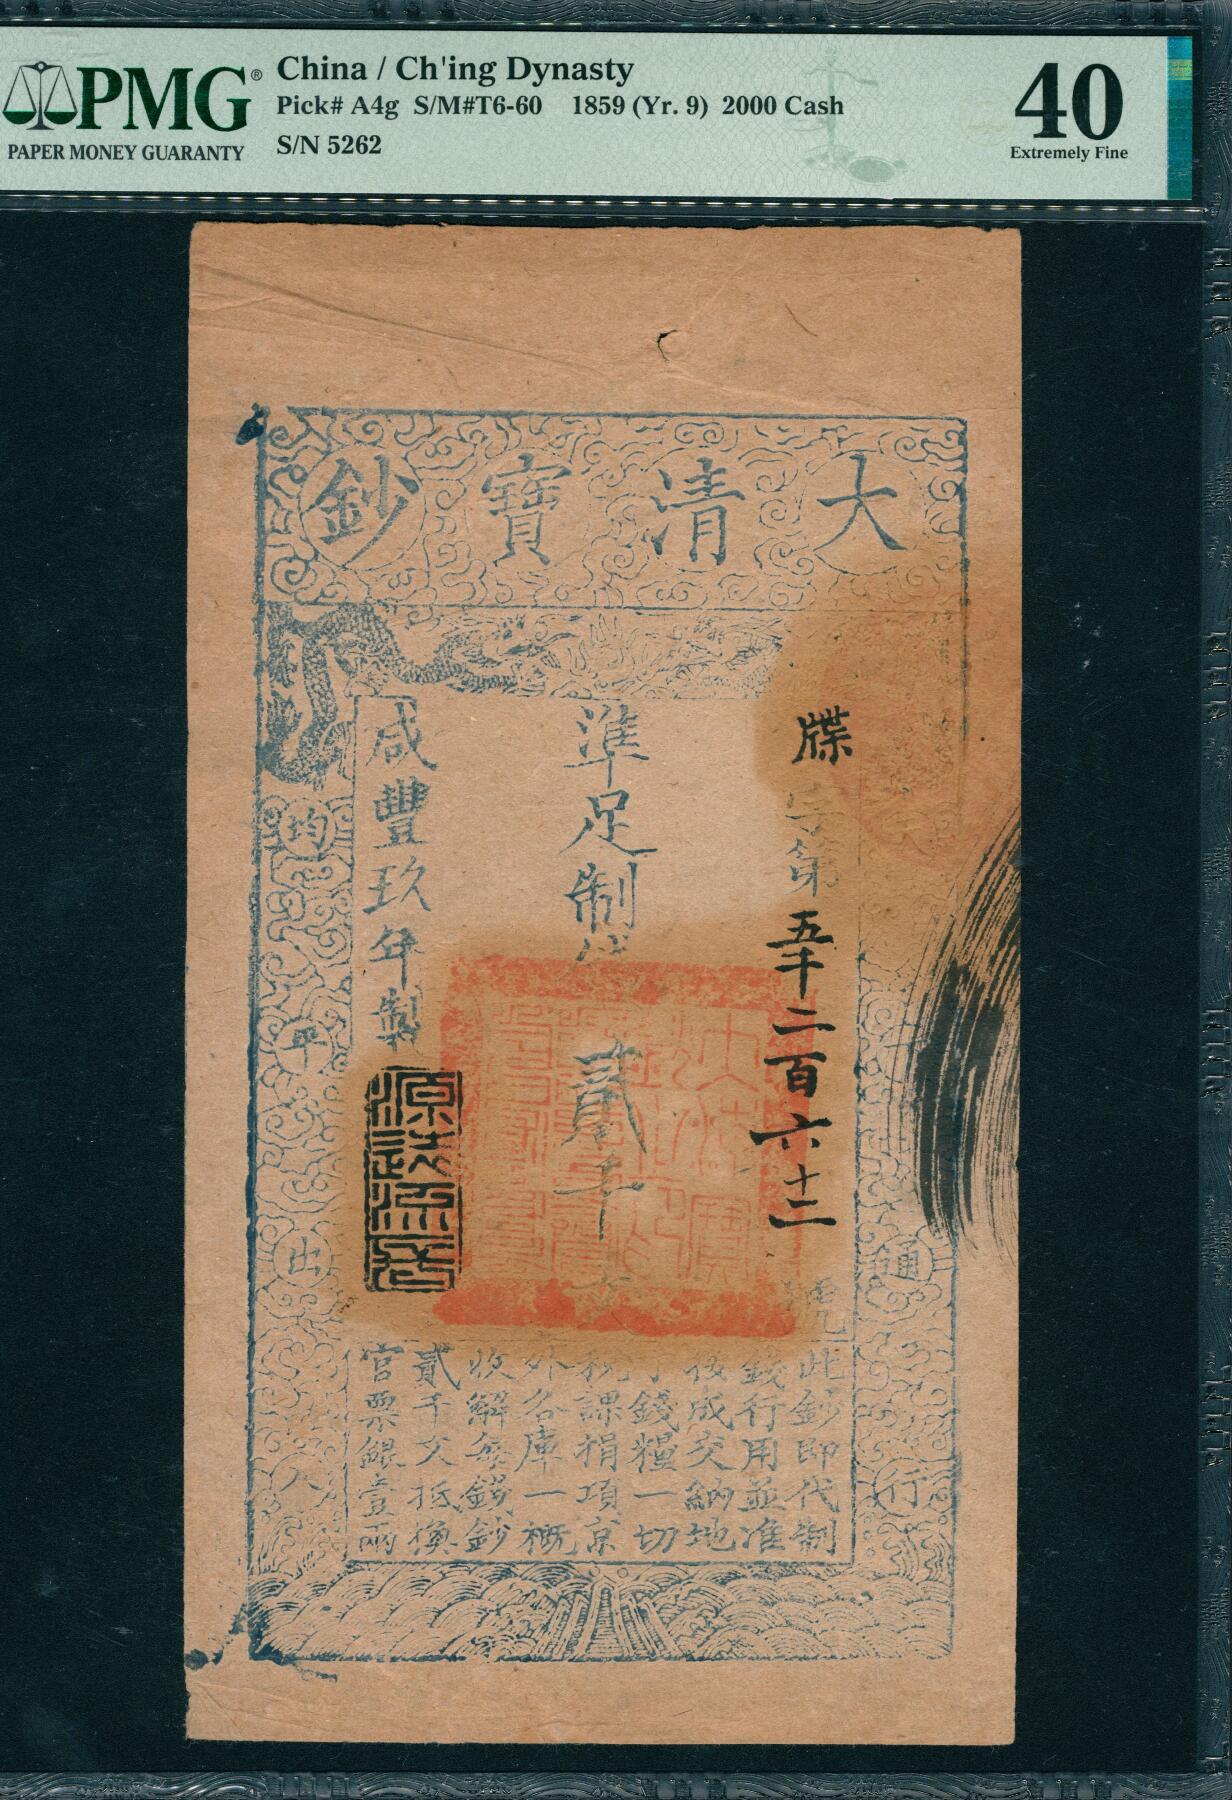 PMG®
PAPER MONEY GUARANTY
China / Ch'ing Dynasty
Pick# A4g S/M#T6-60 1859 (Yr. 9) 2000 Cash
S/N 5262
40
Extremely Fine
大清寶鈔
牒字第五千二百六十二號
準足制錢貳千文
咸豐玖年製
源遠流長
均平出入
通行
此鈔即代制
錢行用並准
按成交納地
丁錢糧一切
稅課捐項京
外各庫一概
收解每錢鈔
貳千文抵換
官票銀壹兩